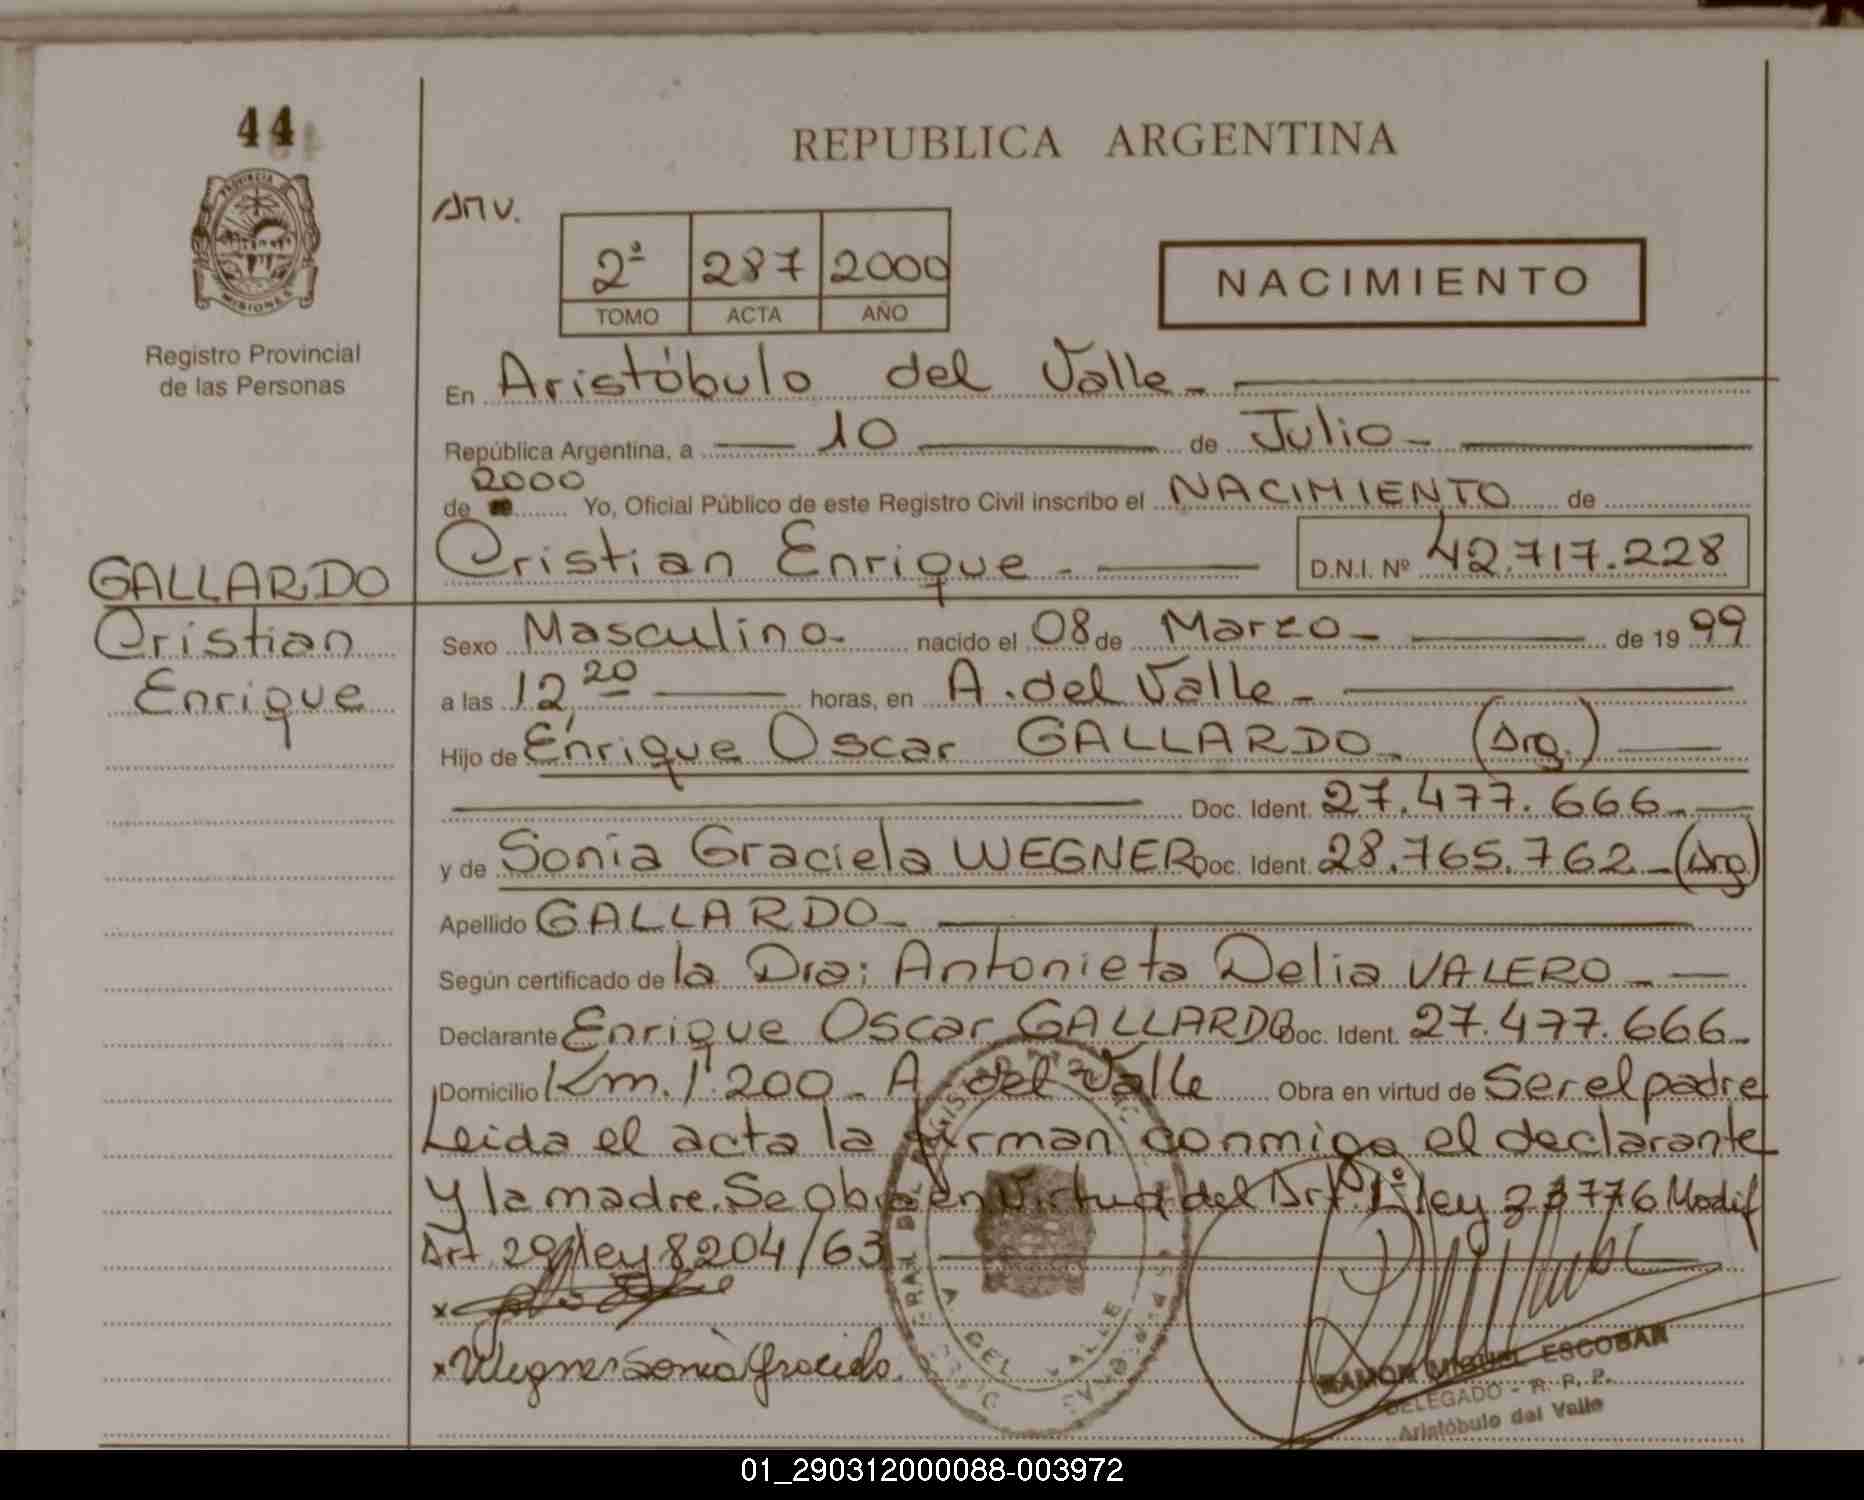 44
PROVINCIA DE
MISIONES
Registro Provincial
de las Personas
REPUBLICA ARGENTINA
2ª 287 2000
TOMO ACTA AÑO
NACIMIENTO
En Aristóbulo del Valle -
República Argentina, a 10 de Julio -
2000
de Yo, Oficial Público de este Registro Civil inscribo el NACIMIENTO de
Cristian Enrique - D.N.I. Nº 42.717.228
GALLARDO
Cristian
Enrique
Sexo Masculino - nacido el 08 de Marzo - de 19 99
a las 12,20 horas, en A. del Valle -
Hijo de Enrique Oscar GALLARDO - (Arg.)
Doc. Ident. 27.477.666 -
y de Sonia Graciela WEGNER Doc. Ident. 28.765.762 - (Arg)
Apellido GALLARDO -
Según certificado de la Dra: Antonieta Delia VALERO -
Declarante Enrique Oscar GALLARDO Doc. Ident. 27.477.666 -
Domicilio Km. 1.200 - A. del Valle Obra en virtud de Ser el padre
Leida el acta la firman conmigo el declarante
y la madre. Se obra en virtud del Art. 1º ley 23776 Modif
Art. 29 ley 8204/63
x
x Wegner Sonia Graciela.
A. DEL VALLE
RAMON MIGUEL ESCOBAR
DELEGADO - R. P. P.
Aristóbulo del Valle
01_290312000088-003972